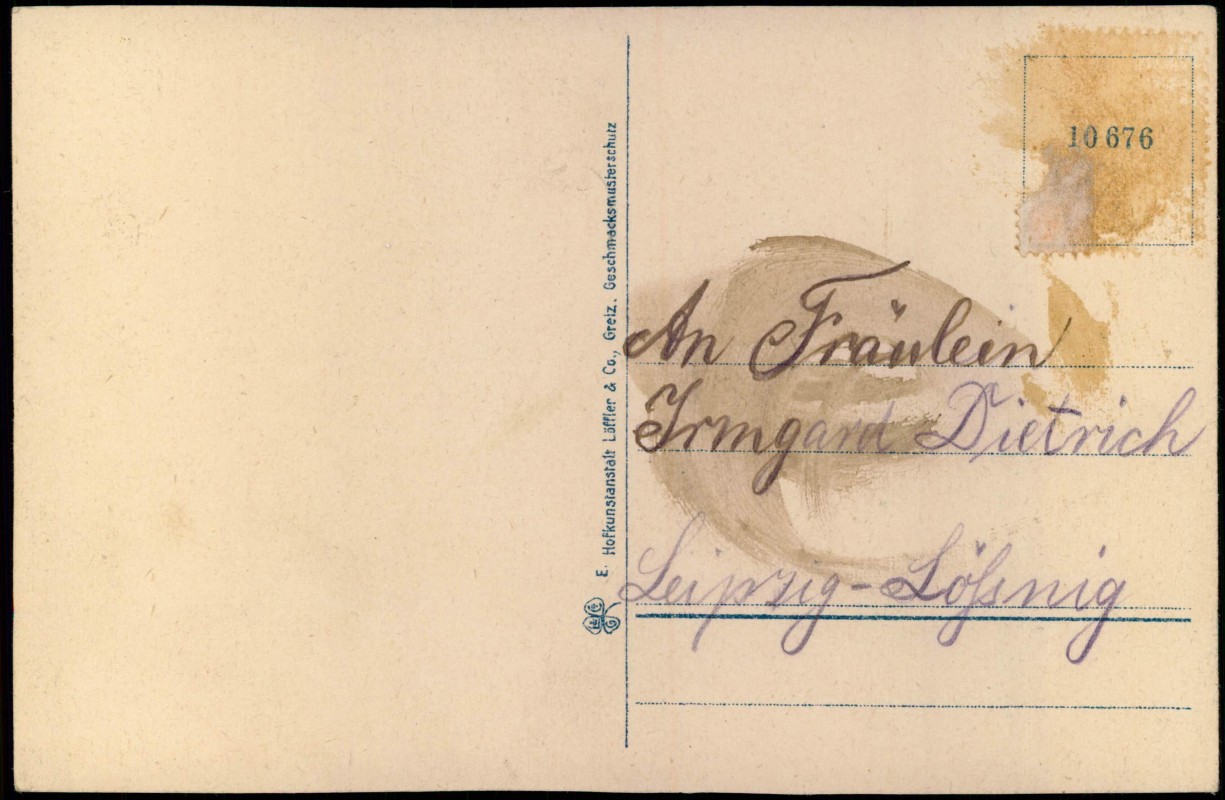 10676
E. Hofkunstanstalt Löffler & Co., Greiz. Geschmacksmusterschutz
An Fräulein
Irmgard Dietrich
Leipzig-Lößnig